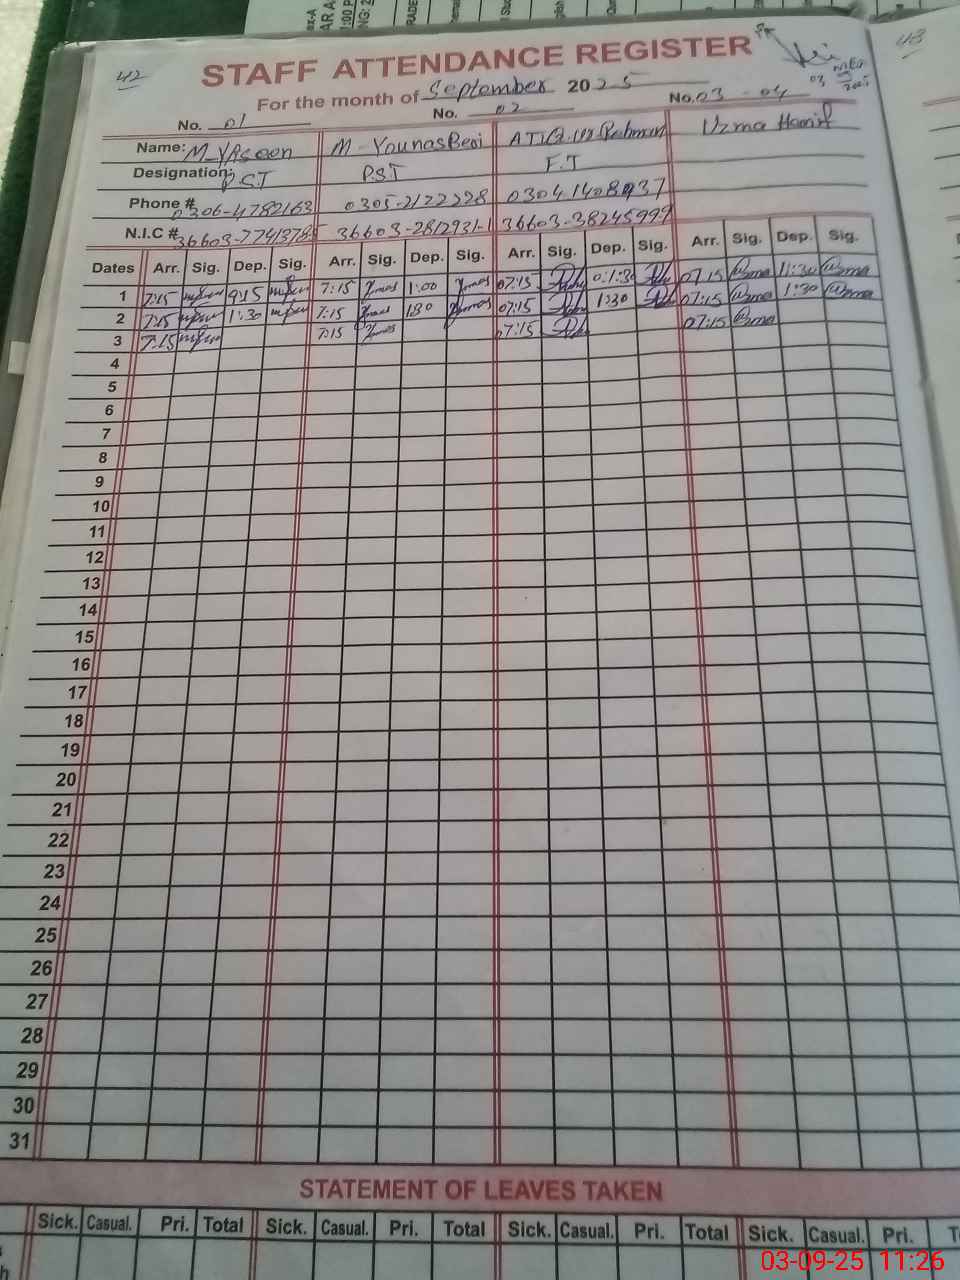 42
48
STAFF ATTENDANCE REGISTER
For the month of September 2025
No. 01 No. 02 No. 03 - 04
Name: M-YAseen M-YounasBeai ATiQ-ur-Rehman Uzma Hanif
Designation: P.ST P.ST F.T
Phone # 0306-4782163 0305-2172228 03041408937
N.I.C # 36603-77413785 36603-2812931-1 36603-38245999
Dates Arr. Sig. Dep. Sig. Arr. Sig. Dep. Sig. Arr. Sig. Dep. Sig. Arr. Sig. Dep. Sig.
1 7:15 9:15 7:15 Younas 1:00 Younas 07:15 01:30 07:15 Uzma 11:30 Uzma
2 7:15 1:30 7:15 Younas 1:30 Younas 07:15 1:30 07:15 Uzma 1:30 Uzma
3 7:15 7:15 Younas 07:15 07:15 Uzma
4
5
6
7
8
9
10
11
12
13
14
15
16
17
18
19
20
21
22
23
24
25
26
27
28
29
30
31
STATEMENT OF LEAVES TAKEN
Sick. Casual. Pri. Total Sick. Casual. Pri. Total Sick. Casual. Pri. Total Sick. Casual. Pri.
03-09-25 11:26